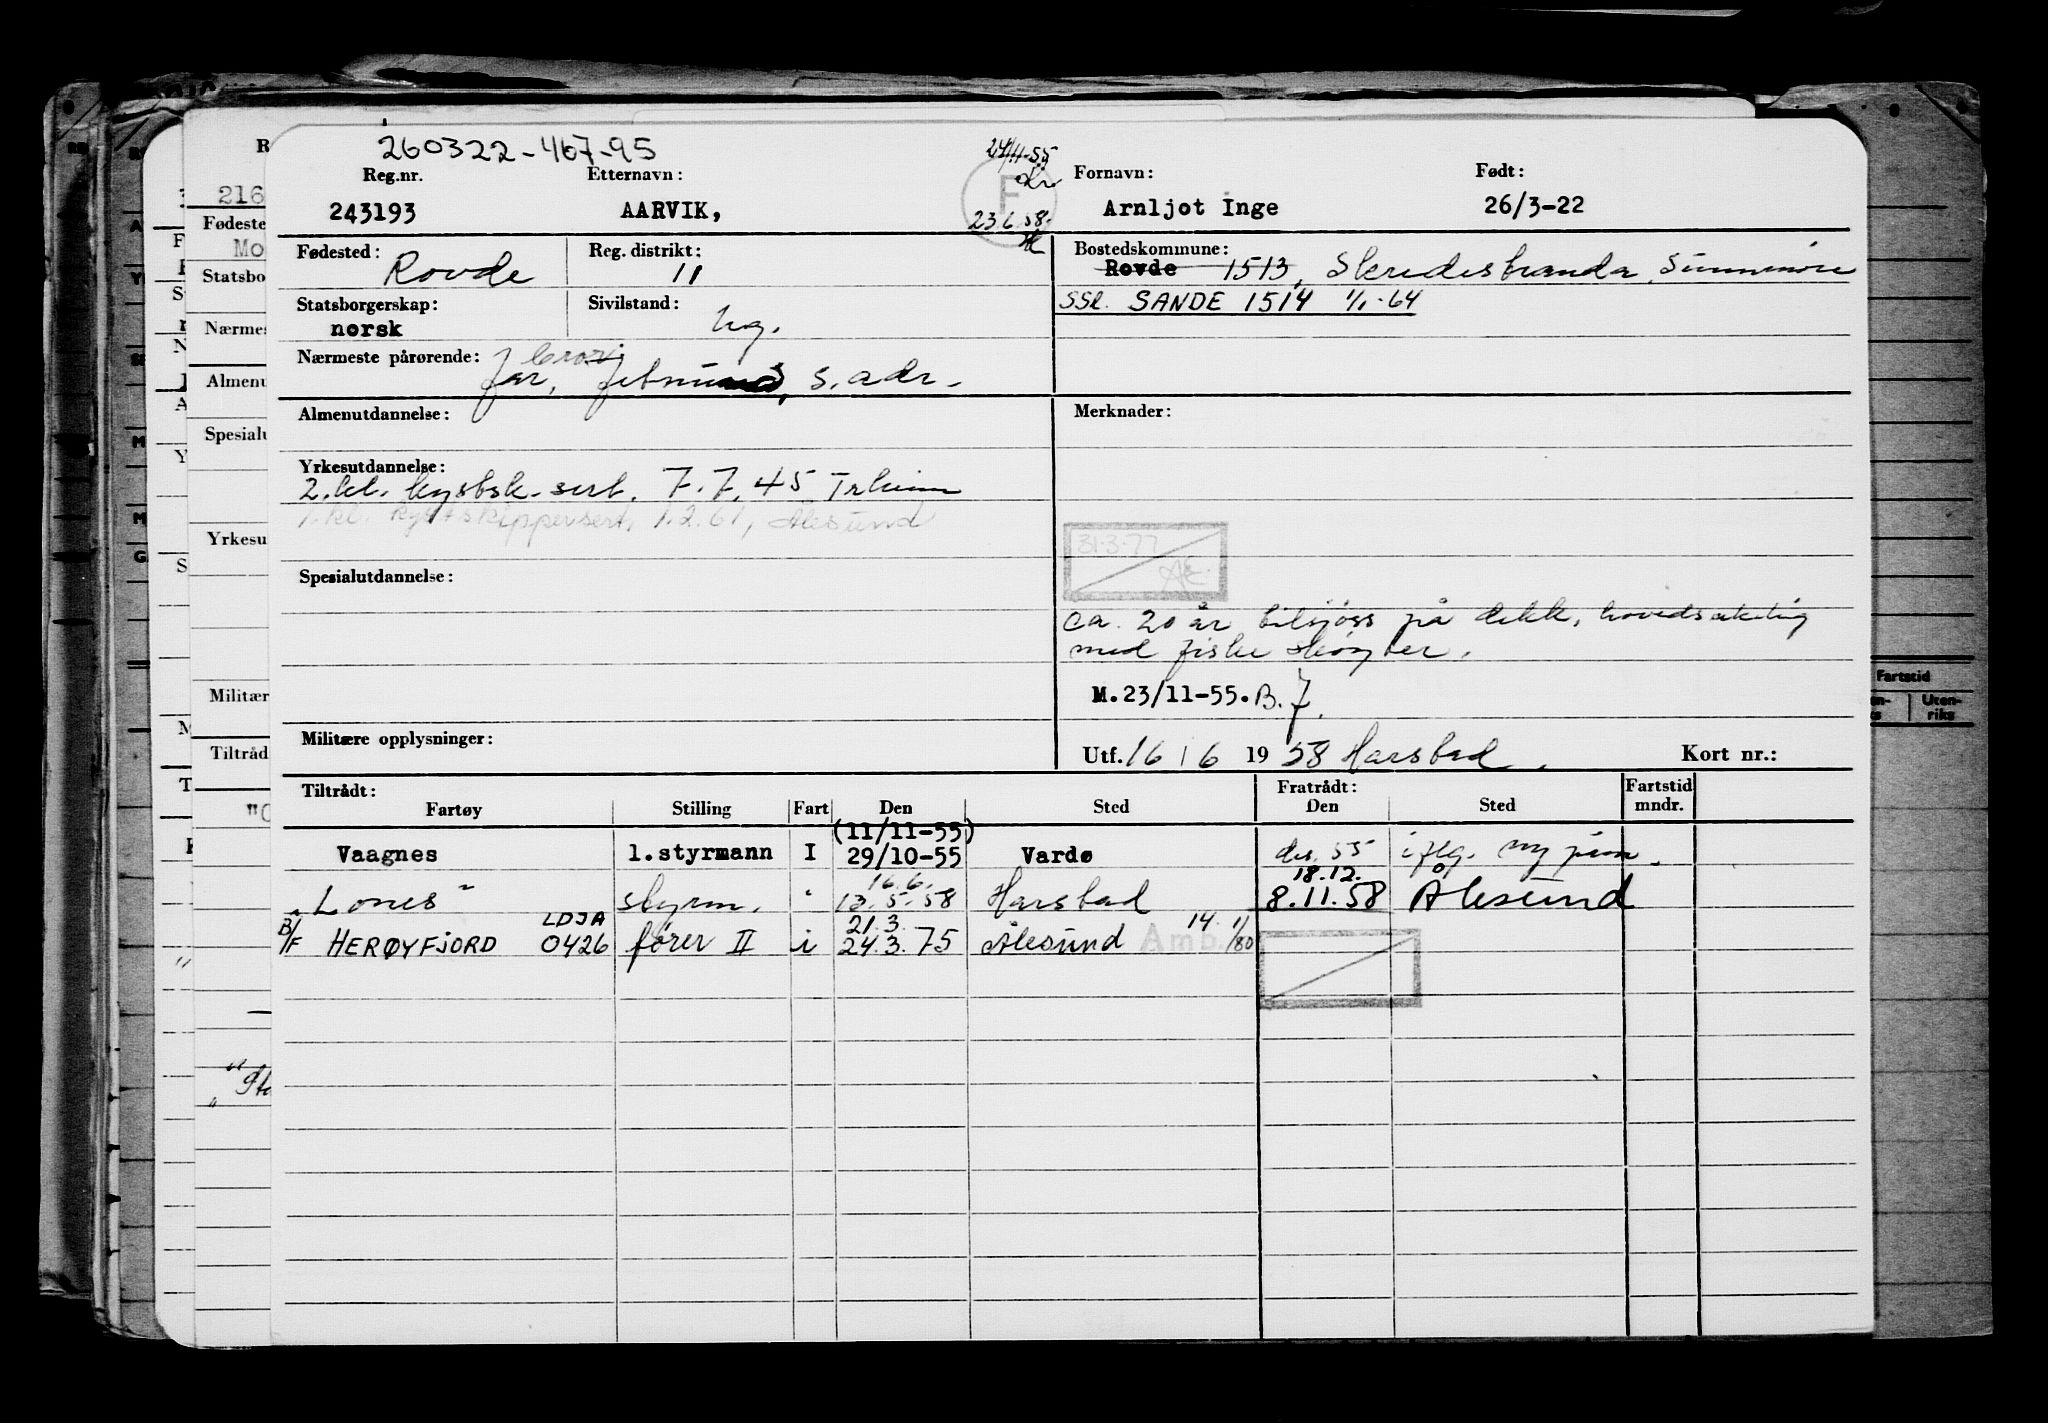 260322-467-95
24/11-55
Reg.nr. Etternavn: Fornavn: Født:
243193 AARVIK, F 23.6.58. Arnljot Inge 26/3-22
Fødested: Rovde Reg. distrikt: 11 Bostedskommune: Rovde 1513, Skredesbranda, Sunnmøre
SSR. SANDE 1514 1/1-64
Statsborgerskap: norsk Sivilstand: ug.
Nærmeste pårørende: far, s. adr.
Almenutdannelse: Merknader:
Yrkesutdannelse:
2. kl. kystsk. sert. 7.7.45 Trheim
1. kl. kystskippersert. 1.2.61, Ålesund
31.3.77
Spesialutdannelse:
ca. 20 år tilsjøss på dekk, hovedsakelig
med fiske
M.23/11-55. B. 7.
Militære opplysninger: Utf. 16/6 1958 Harstad. Kort nr.:
Tiltrådt: Fratrådt: Fartstid
Fartøy Stilling Fart Den Sted Den Sted mndr.
(11/11-55)
Vaagnes 1.styrmann I 29/10-55 Vardø des. 55 iflg. ny
16.6. 18.12.
"Lones" styrm. " 13.5.58 Harstad 8.11.58 Ålesund
B/F HERØYFJORD LDJA 0426 fører II i 21.3. 24.3.75 Ålesund Amb. 14.1/80
216
Fødeste
Mo
Statsbo
Nærmes
Almenu
Spesialu
Yrkesu
Militær
Tiltråd
Fartstid
Uten-
riks